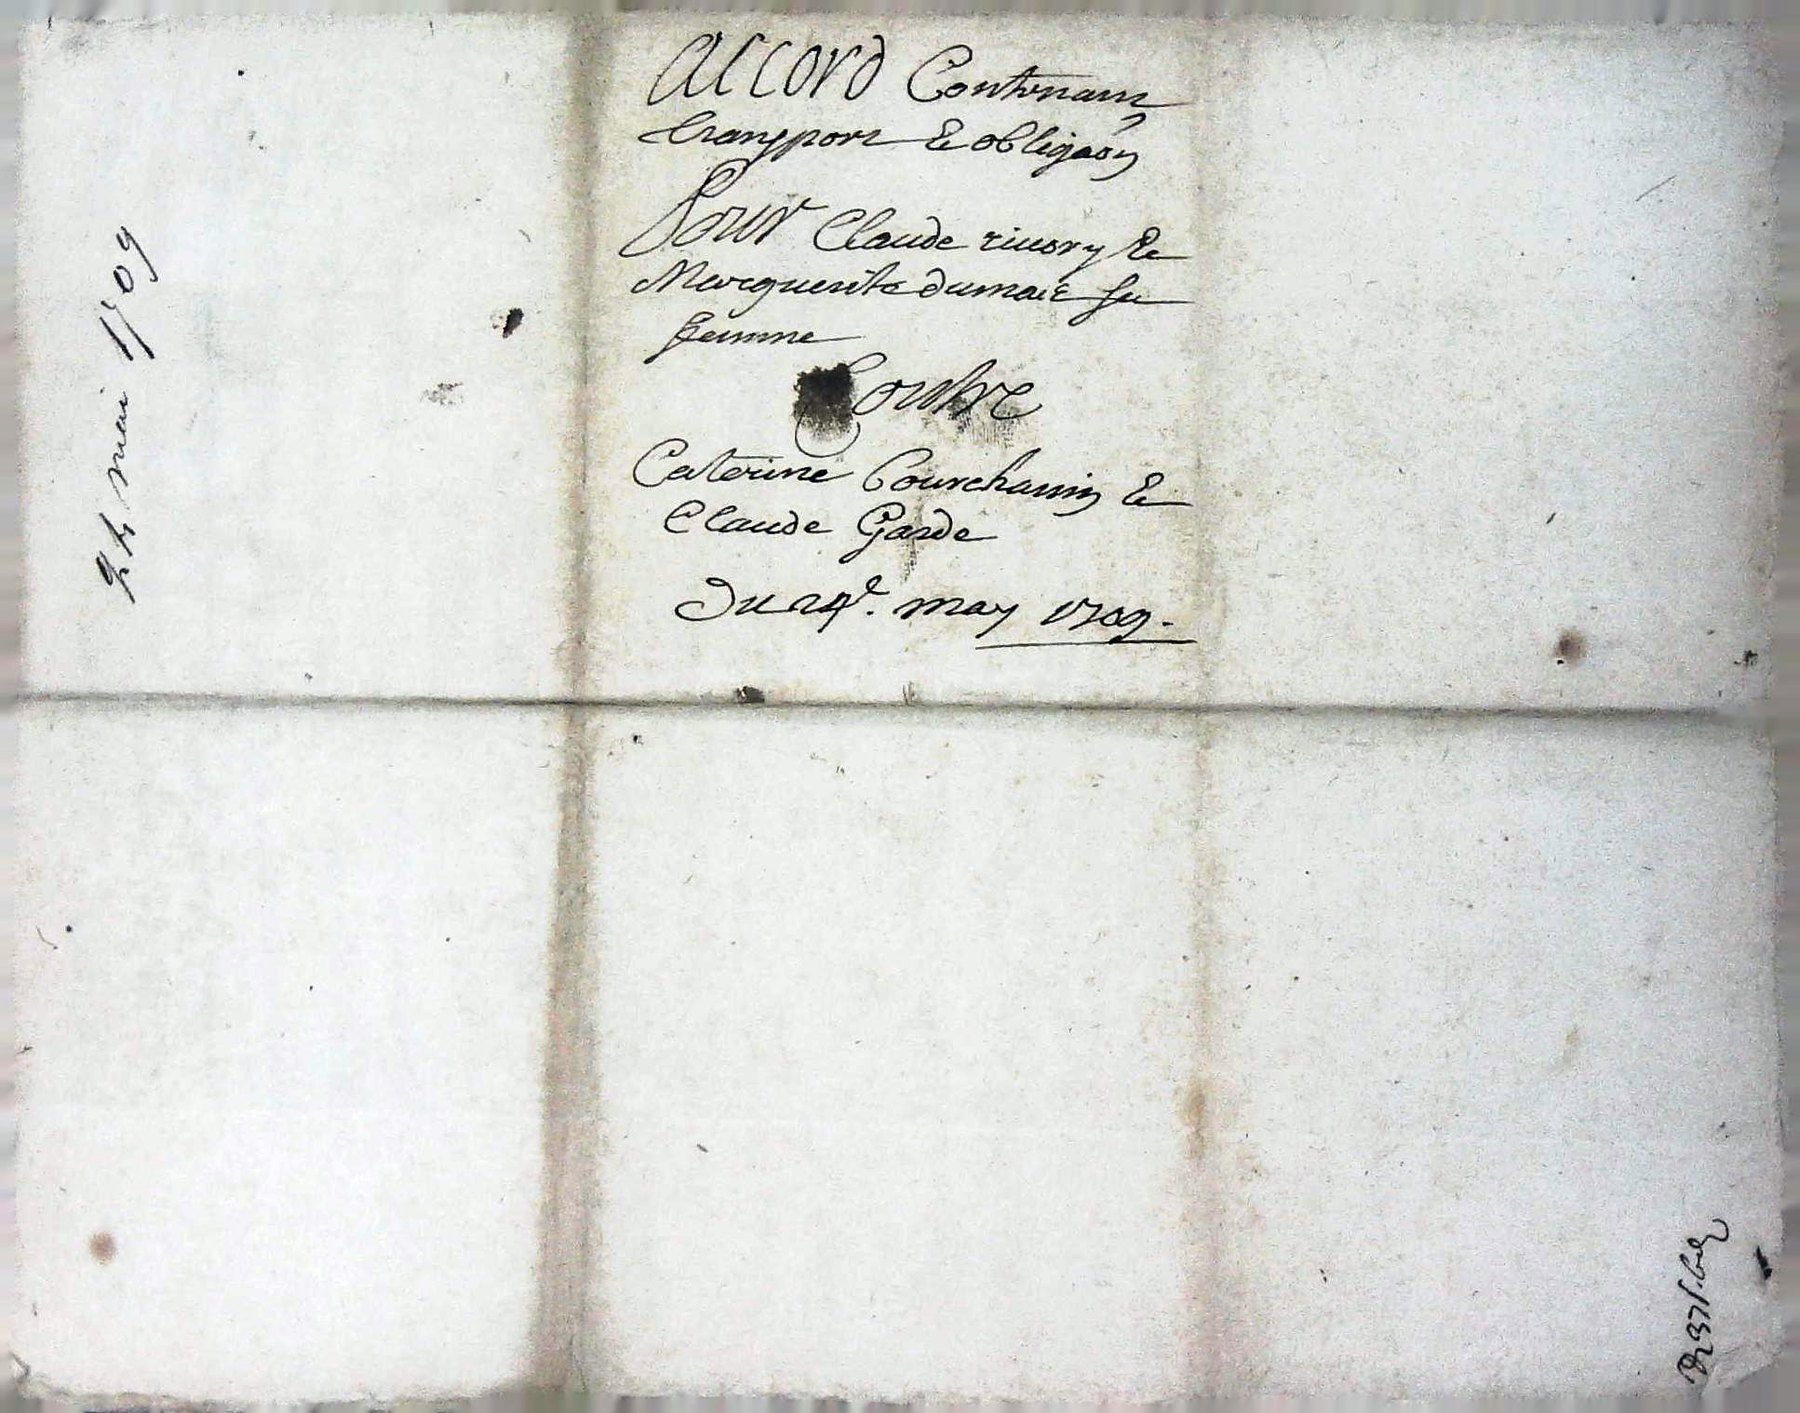 Accord Contenant
transport & obligaõn
Pour Claude riuory &
Marguerite dumais sa
femme
Contre
Caterine Courchamin &
Claude Garde
Du 24e. may 1709.
24 mai 1709